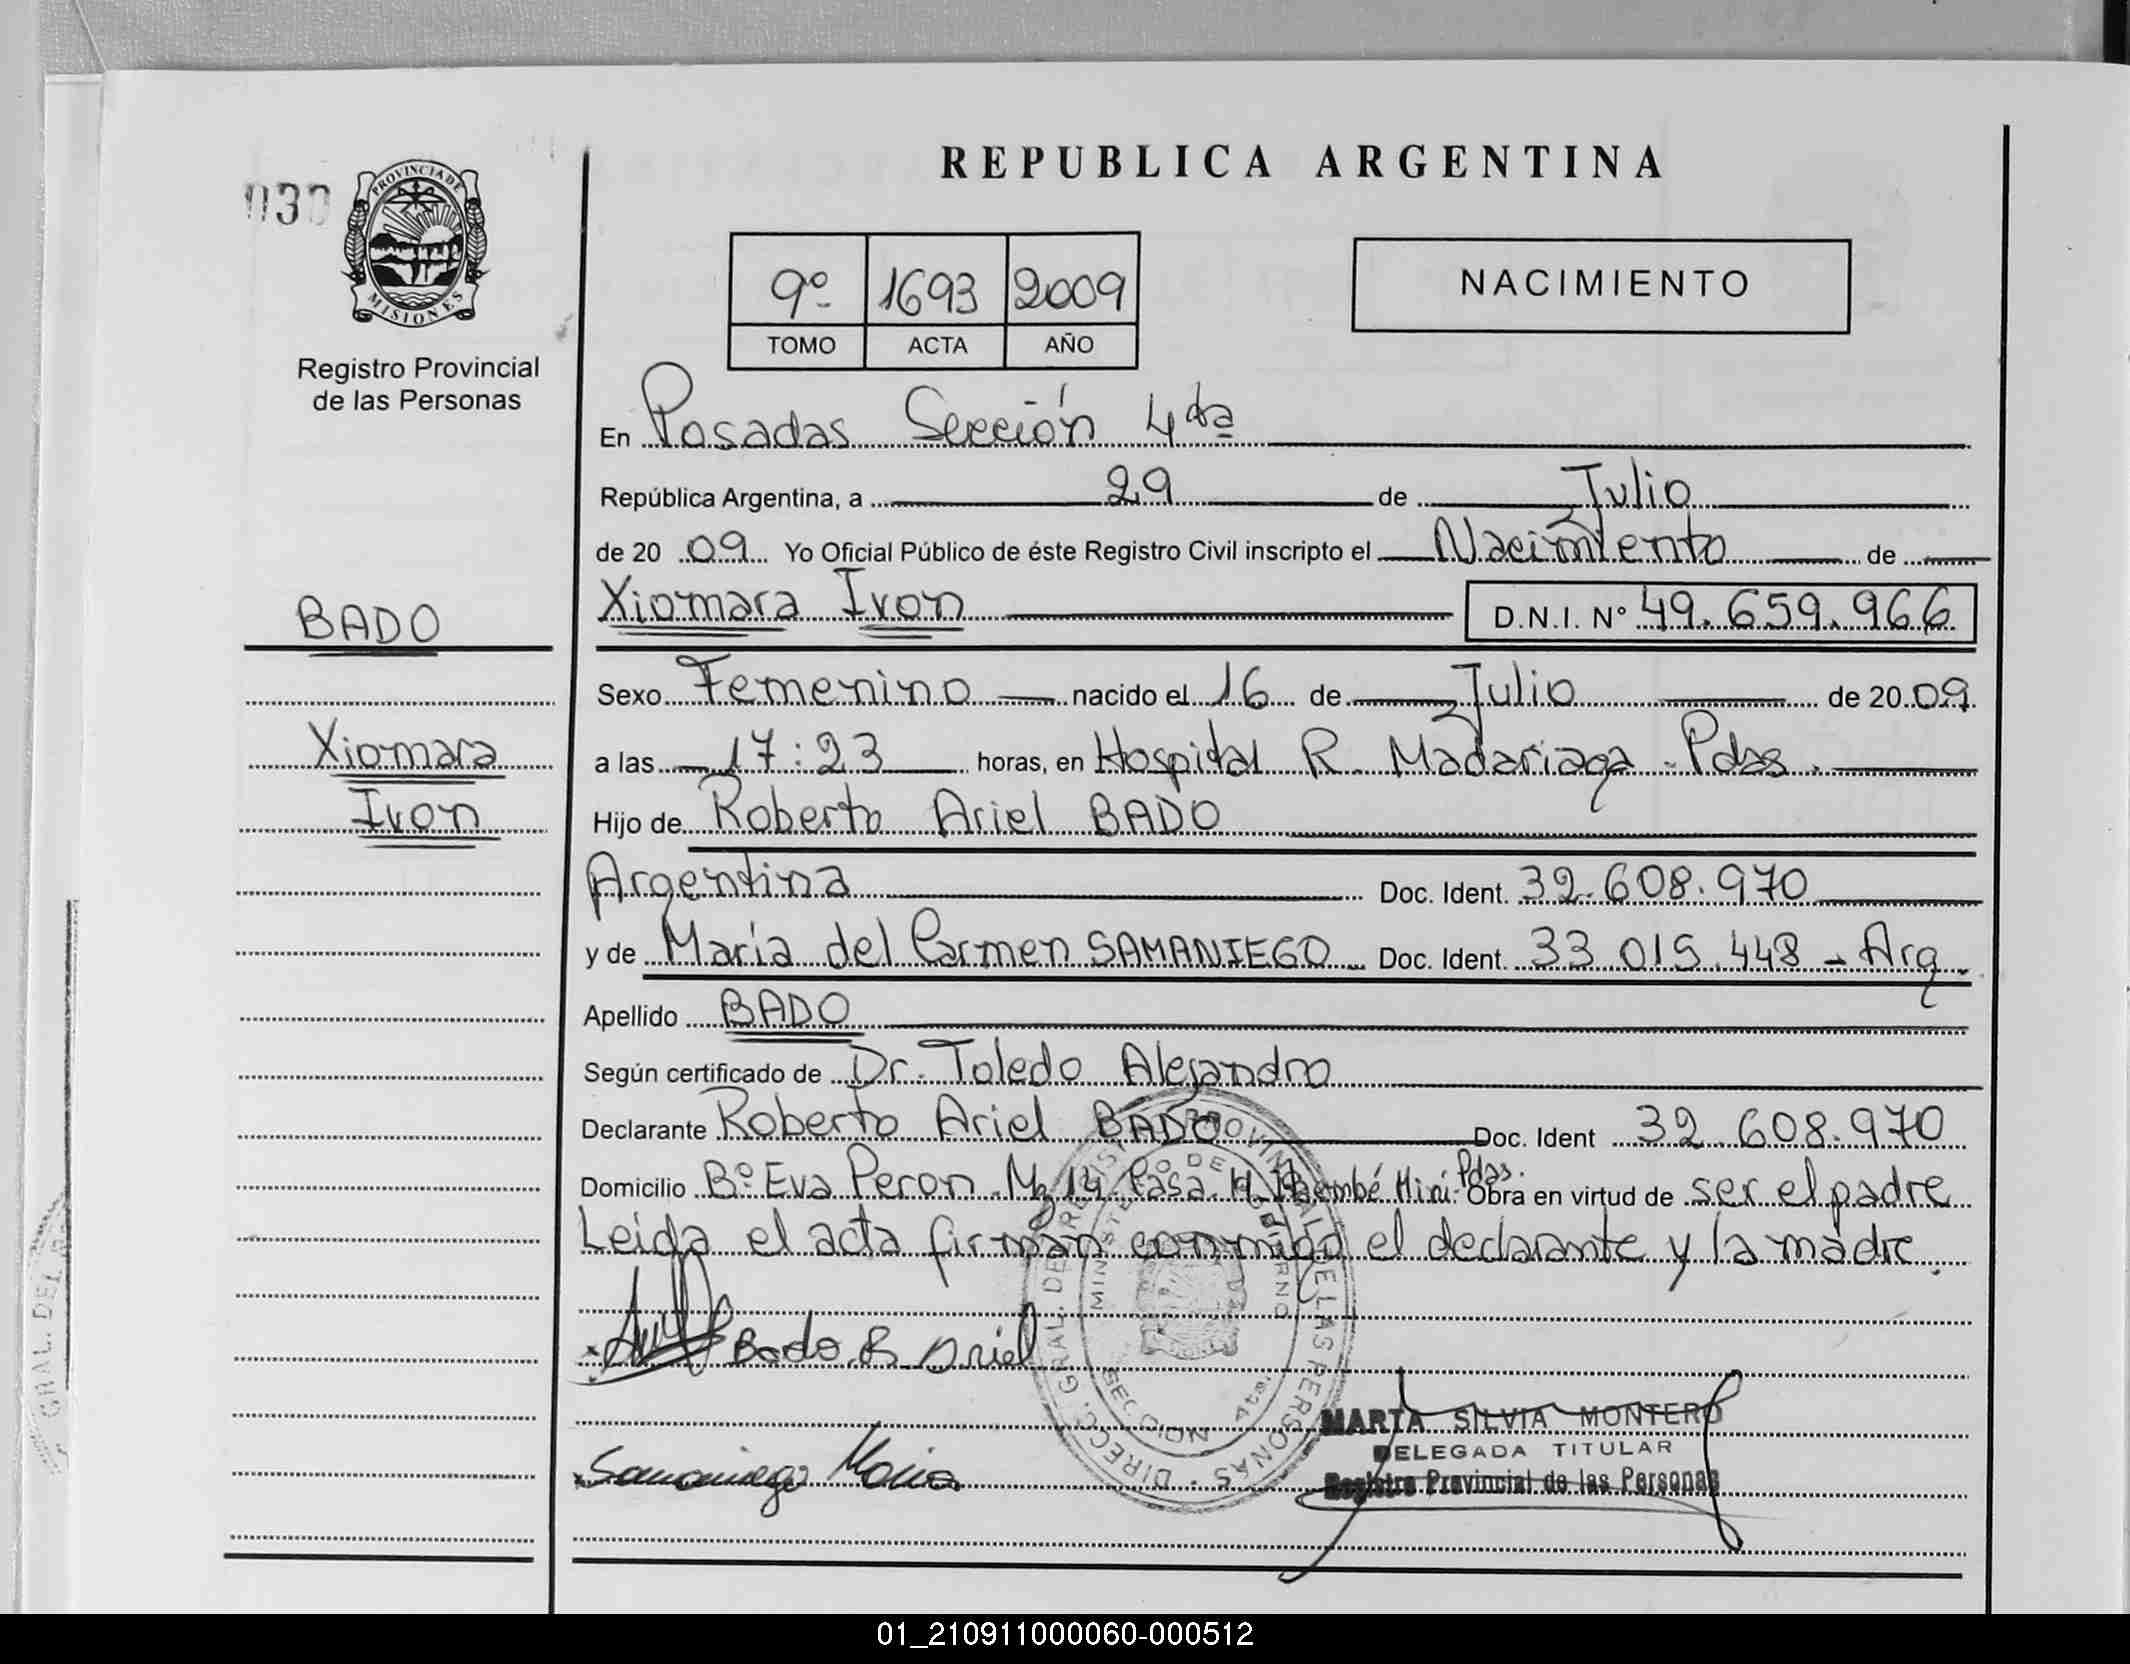 030
PROVINCIA DE
MISIONES
Registro Provincial
de las Personas
REPUBLICA ARGENTINA
9º 1693 2009
TOMO ACTA AÑO
NACIMIENTO
En Posadas Sección 4ta
República Argentina, a 29 de Julio
de 20 09 Yo Oficial Público de éste Registro Civil inscripto el Nacimiento de
BADO
Xiomara Ivon D.N.I. Nº 49.659.966
Sexo Femenino nacido el 16 de Julio de 20 09
Xiomara
a las 17:23 horas, en Hospital R. Madariaga - Pdas.
Ivon
Hijo de Roberto Ariel BADO
Argentina Doc. Ident. 32.608.970
y de María del Carmen SAMANIEGO Doc. Ident. 33.015.448 - Arg.
Apellido BADO
Según certificado de Dr. Toledo Alejandro
Declarante Roberto Ariel BADO Doc. Ident 32.608.970
Domicilio Bº Eva Peron. Mz 14. Casa 14 Itaembé Miní. Pdas. Obra en virtud de ser el padre
Leída el acta firman conmigo el declarante y la madre.
Bado R. Ariel
Samaniego Maria
DIRECC. GRAL. DE REGISTRO PROVINCIAL DE LAS PERSONAS
MINISTERIO DE GOBIERNO
SECCION 4ta.
MARTA SILVIA MONTERO
DELEGADA TITULAR
Registro Provincial de las Personas
GRAL. DEL
01_210911000060-000512